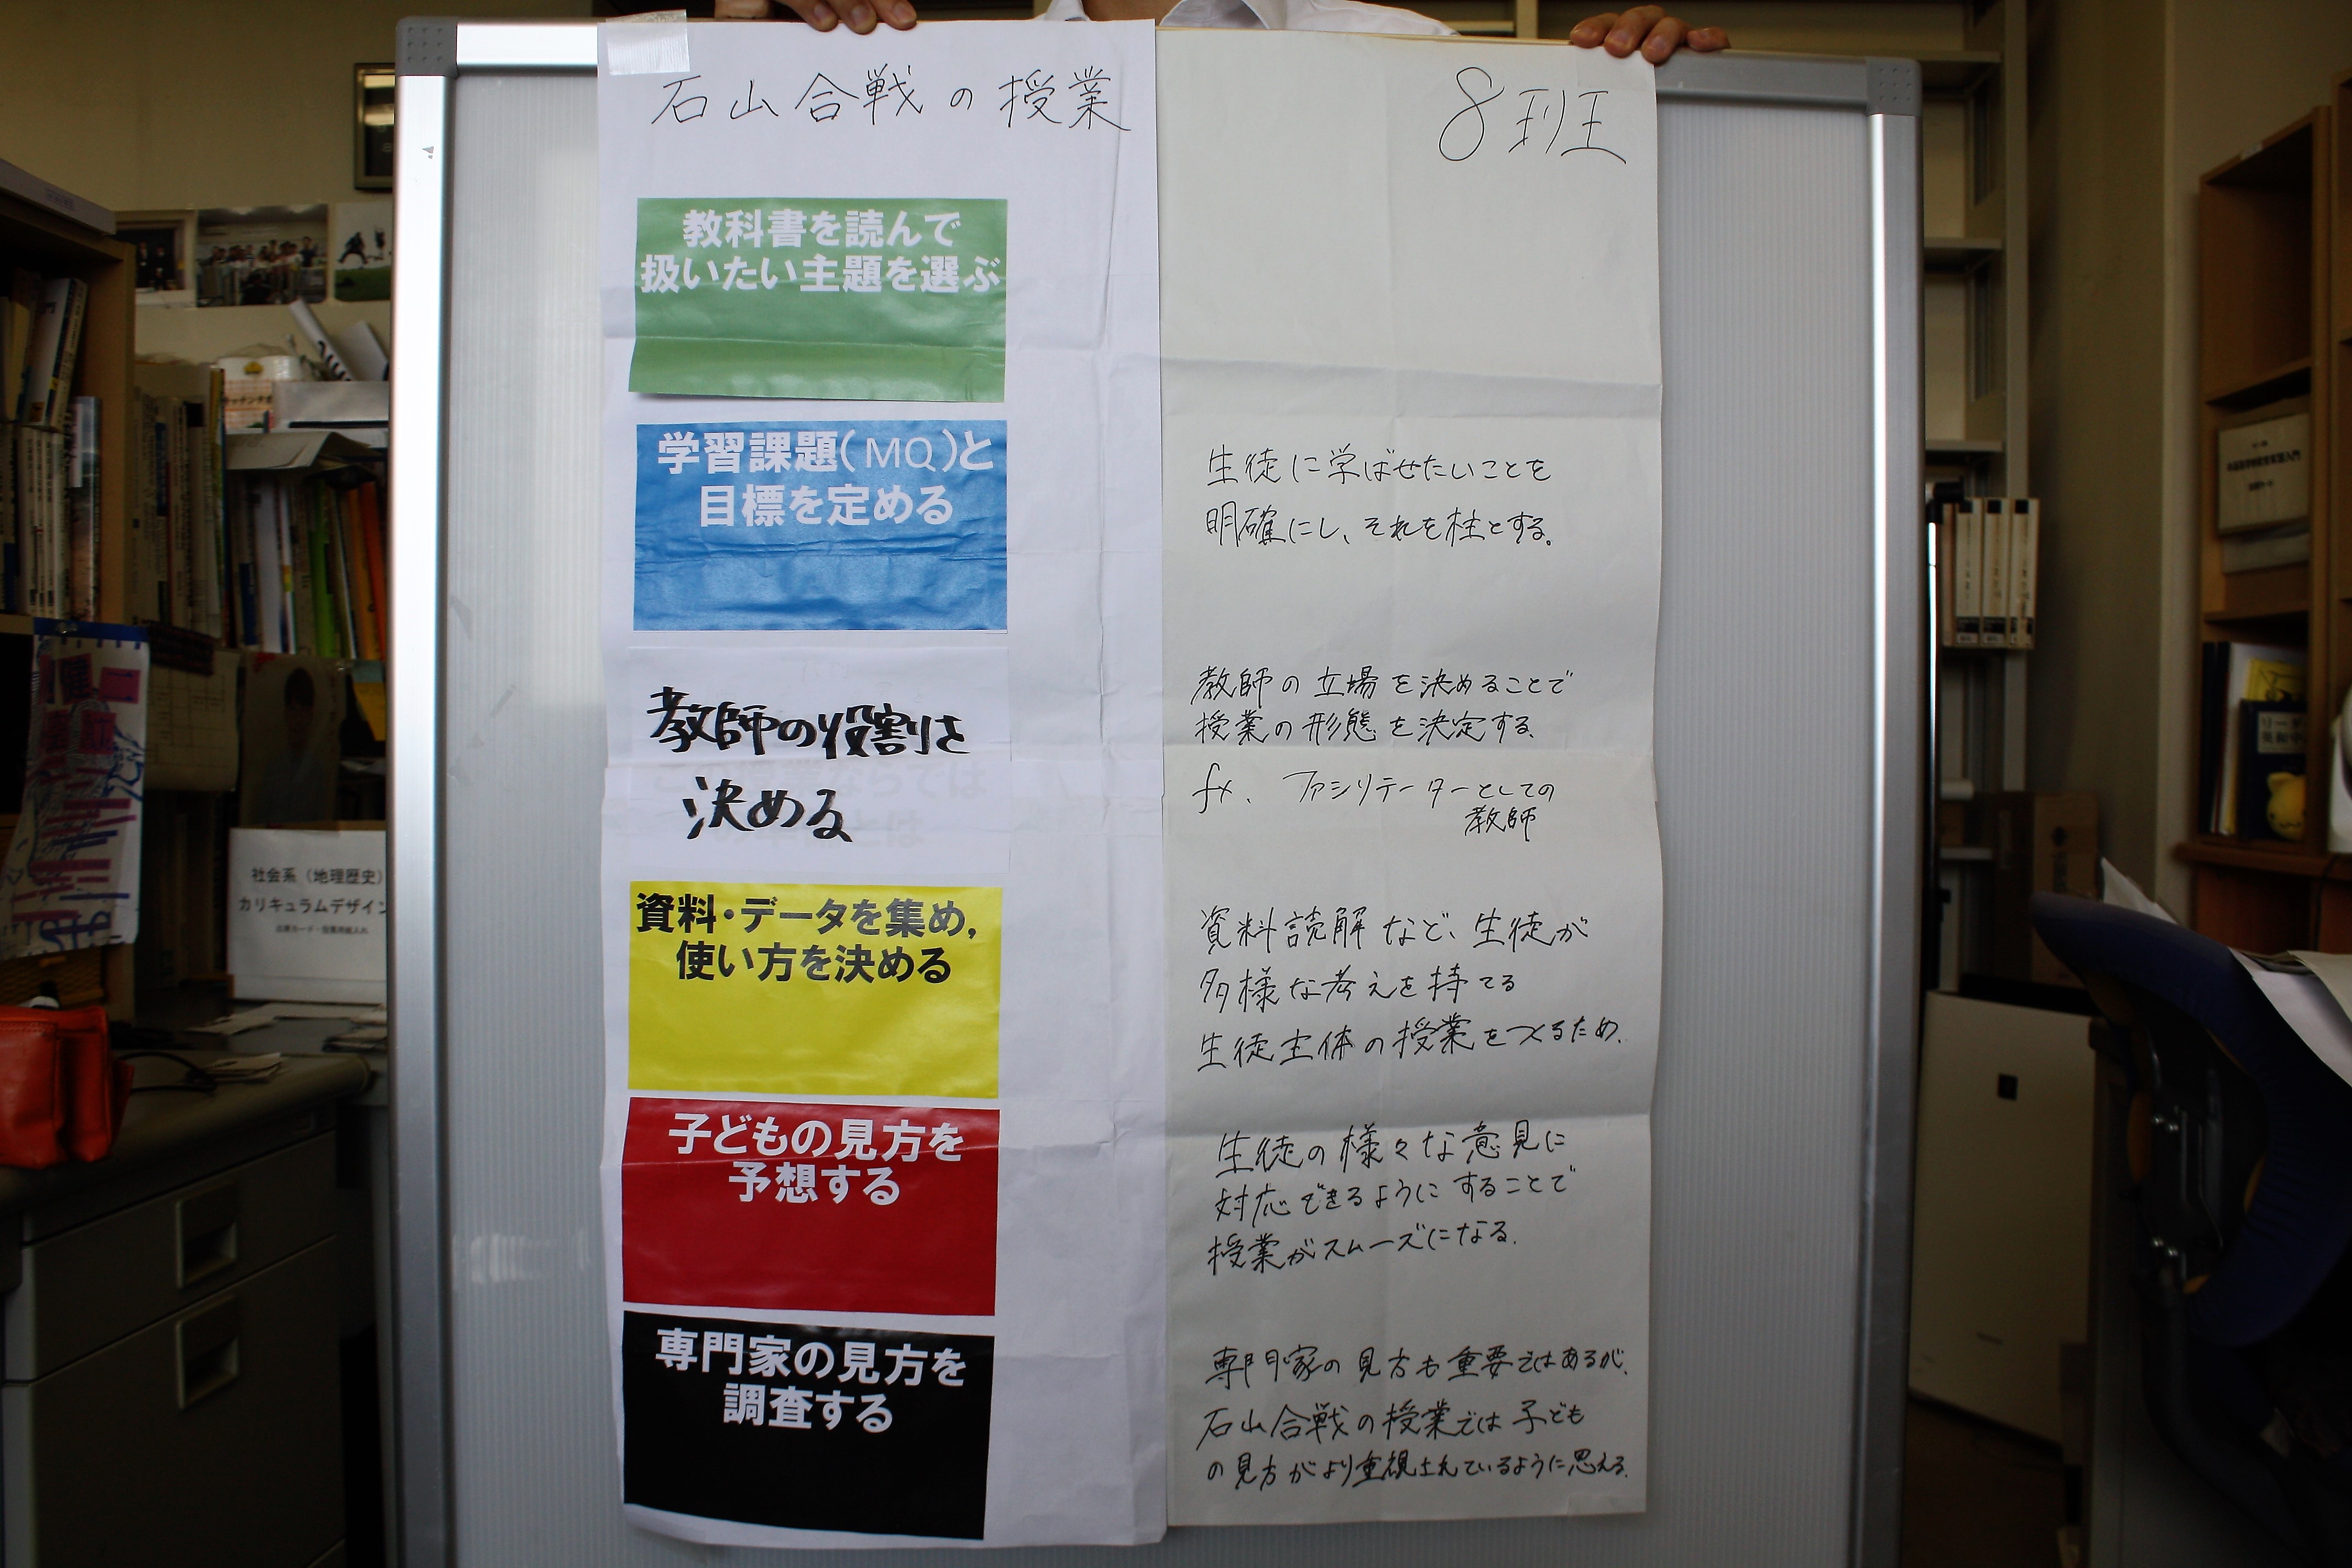 石山合戦の授業
8班
教科書を読んで
扱いたい主題を選ぶ
学習課題(MQ)と
目標を定める
生徒に学ばせたいことを
明確にし、それを柱とする。
教師の役割を
決める
教師の立場を決めることで
授業の形態を決定する。
fx. ファシリテーターとしての
教師
資料・データを集め,
使い方を決める
資料読解など、生徒が
多様な考えを持てる
生徒主体の授業をつくるため.
子どもの見方を
予想する
生徒の様々な意見に
対応できるようにすることで
授業がスムーズになる.
専門家の見方を
調査する
専門家の見方も重要ではあるが、
石山合戦の授業では子ども
の見方がより重視されているように思える.
社会系(地理歴史)
カリキュラムデザイン